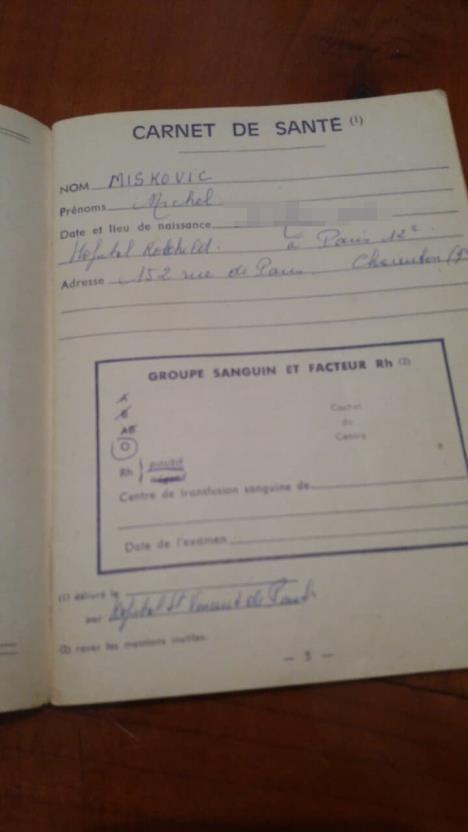 CARNET DE SANTÉ (1)
NOM MISKOVIC
Prénoms Michel
Date et lieu de naissance
Hôpital Rotchild. à Paris 12e
Adresse 152 rue de Paris Charenton
GROUPE SANGUIN ET FACTEUR Rh (2)
A
B
AB
O
Cachet
du
Centre
Rh } positif
négatif
Centre de transfusion sanguine de
Date de l'examen
(1) délivré le
par Hôpital St Vincent de Paul
(2) rayer les mentions inutiles.
— 3 —